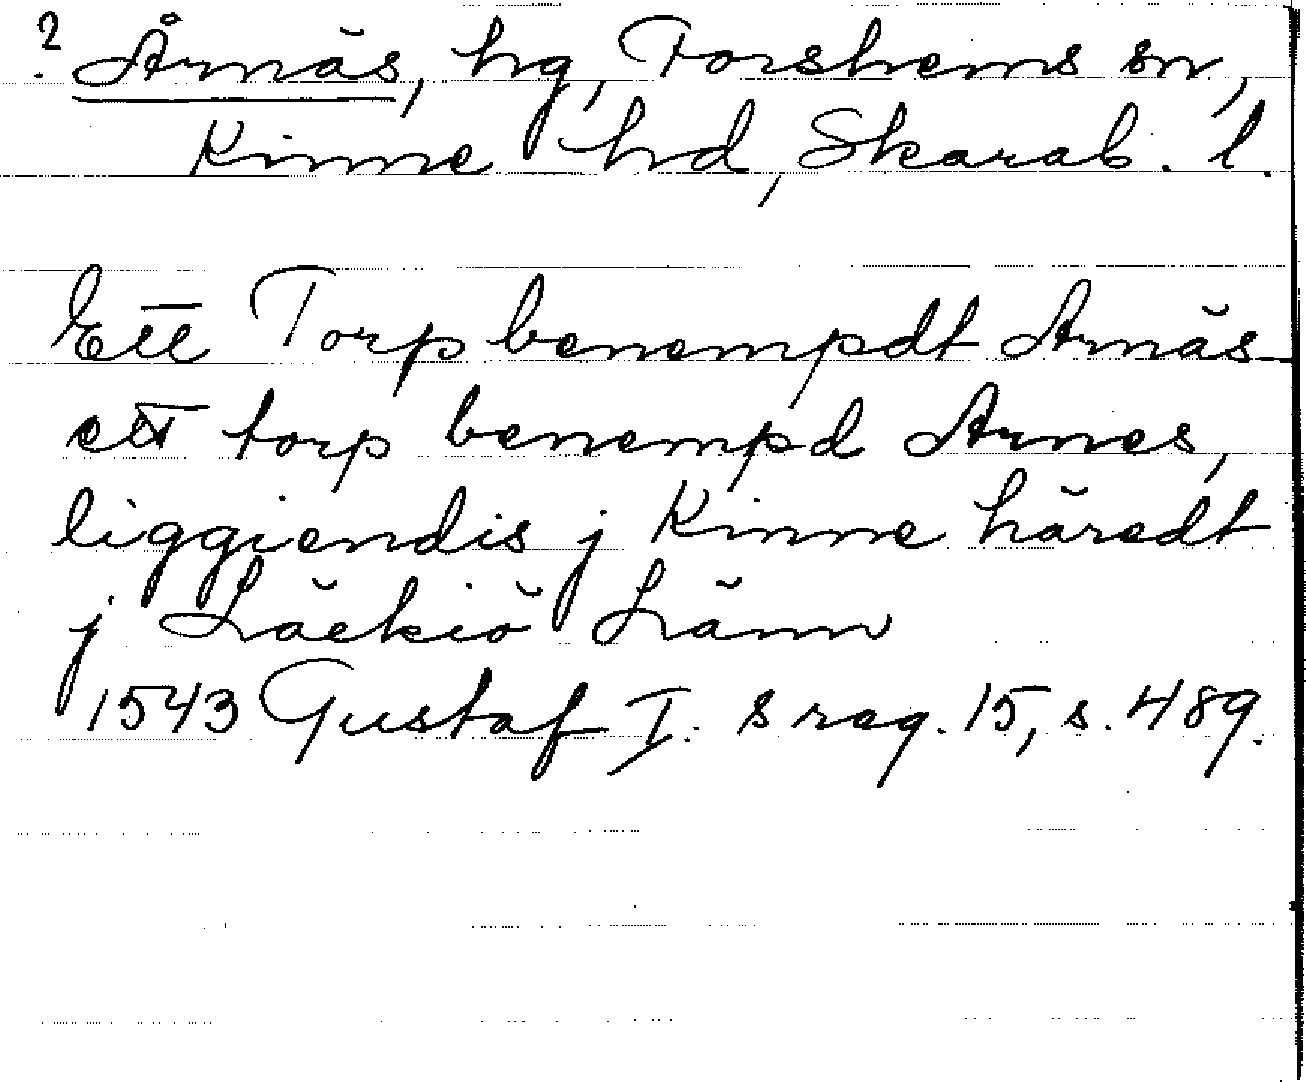 ? Årnäs, hg, Forshems sn,
Kinne hd, Skarab. l.
Ett Torp benempdt Arnäs
ett torp benempd Arnes,
liggiendis j Kinne häredt
j Läckiö Länn
1543 Gustaf I: s reg. 15, s. 489.